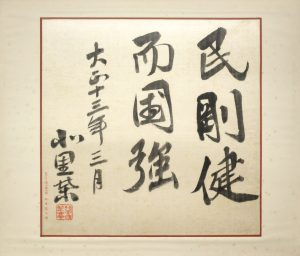 民剛健
而国強
大正十三年三月
小里葉